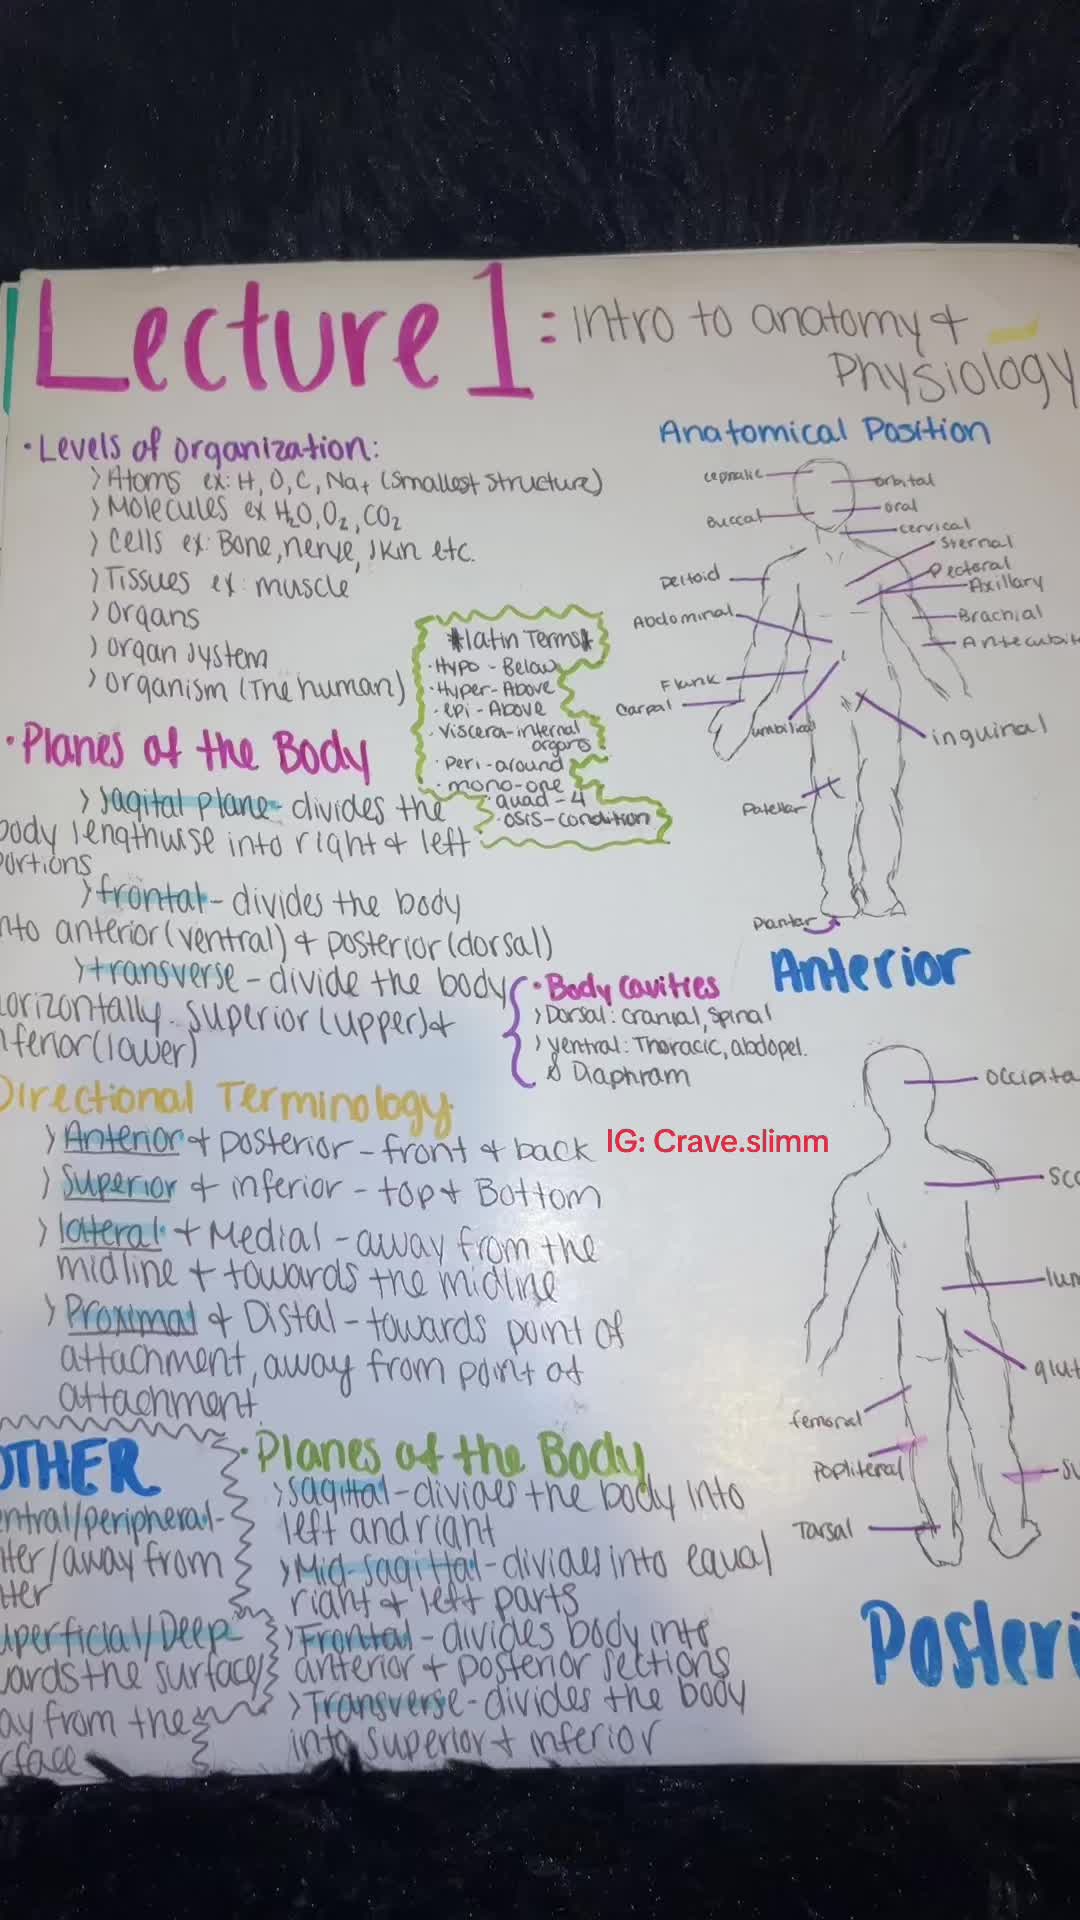 Lecture 1: intro to anatomy &
Physiology
• Levels of organization:
> Atoms ex: H, O, C, Na+ (Smallest Structure)
> Molecules ex H2O, O2, CO2
> Cells ex: Bone, nerve, skin etc.
> Tissues ex: muscle
> Organs
> organ system
> organism (The human)
*latin Terms*
• Hypo - Below
• Hyper - Above
• epi - Above
• Viscera - internal
organs
• peri - around
• mono - one
• quad - 4
• osis - condition
• Planes of the Body
> sagital plane - divides the
body lengthwise into right & left
portions
> frontal - divides the body
nto anterior (ventral) & posterior (dorsal)
> transverse - divide the body
orizontally. superior (upper) &
nferior (lower)
• Body cavities
> Dorsal: cranial, spinal
> ventral: Thoracic, abdopel.
& Diaphram
Directional Terminology
> Anterior & posterior - front & back
> superior & inferior - top & Bottom
> lateral & Medial - away from the
midline & towards the midline
> Proximal & Distal - towards point of
attachment, away from point of
attachment
IG: Crave.slimm
OTHER
entral/peripheral -
nter/away from
nter
uperficial/Deep -
wards the surface/
ay from the
rface
• Planes of the Body
> sagittal - divides the body into
left and right
> Mid-sagittal - divides into equal
right & left parts
> Frontal - divides body into
anterior & posterior sections
> Transverse - divides the body
into superior & inferior
Anatomical Position
cephalic
orbital
oral
Buccal
cervical
Sternal
Pectoral
Axillary
Deltoid
Brachial
Abdominal
Antecubit
Flank
Carpal
umbilical
inguinal
Patellar
Plantar
Anterior
occipita
sca
lum
glut
femoral
Popliteral
su
Tarsal
Posteri